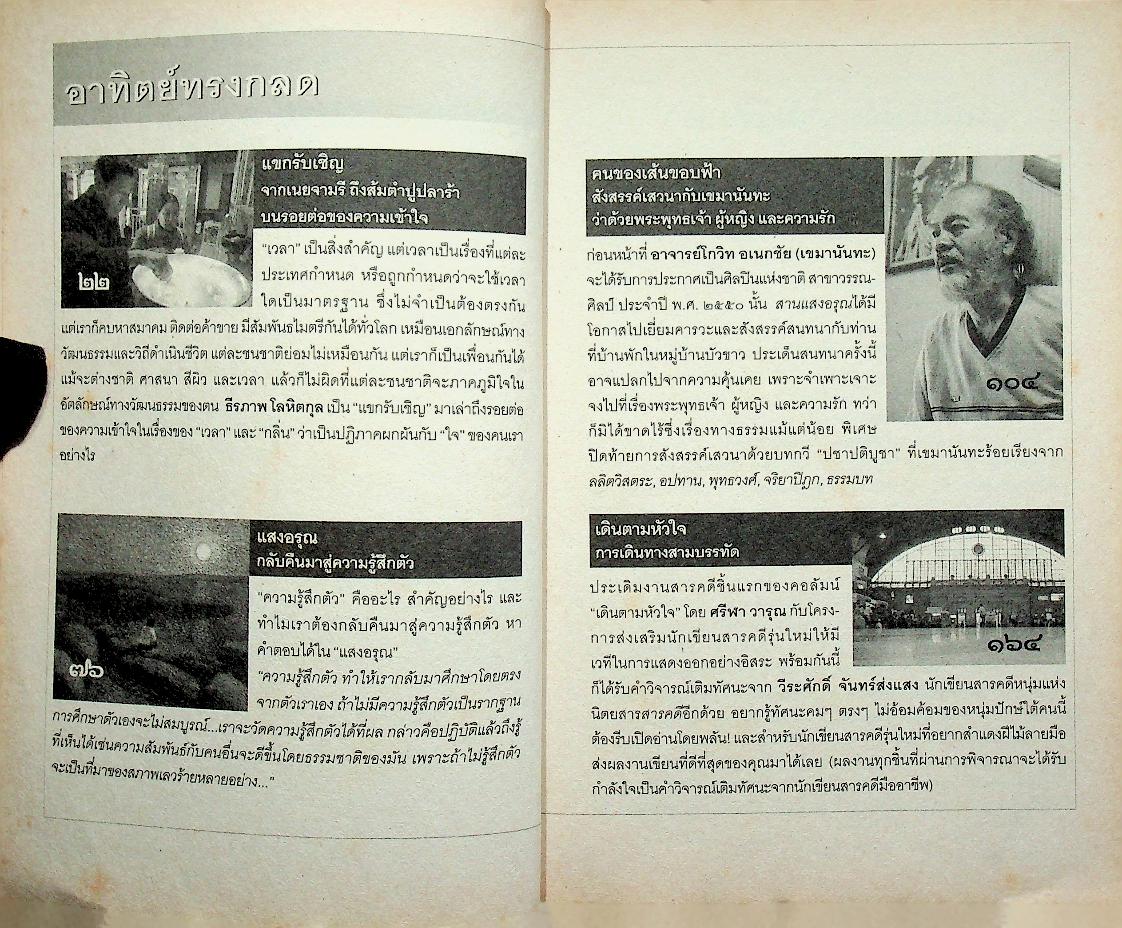 อาทิตย์ทรงกลด
แขกรับเชิญ
จากเนยจามรี ถึงส้มตำปูปลาร้า
บนรอยต่อของความเข้าใจ
๒๒
“เวลา” เป็นสิ่งสำคัญ แต่เวลาเป็นเรื่องที่แต่ละ
ประเทศกำหนด หรือถูกกำหนดว่าจะใช้เวลา
ใดเป็นมาตรฐาน ซึ่งไม่จำเป็นต้องตรงกัน
แต่เราก็คบหาสมาคม ติดต่อค้าขาย มีสัมพันธไมตรีกันได้ทั่วโลก เหมือนเอกลักษณ์ทาง
วัฒนธรรมและวิถีดำเนินชีวิต แต่ละชนชาติย่อมไม่เหมือนกัน แต่เราก็เป็นเพื่อนกันได้
แม้จะต่างชาติ ศาสนา สีผิว และเวลา แล้วก็ไม่ผิดที่แต่ละชนชาติจะภาคภูมิใจใน
อัตลักษณ์ทางวัฒนธรรมของตน ธีรภาพ โลหิตกุล เป็น “แขกรับเชิญ” มาเล่าถึงรอยต่อ
ของความเข้าใจในเรื่องของ “เวลา” และ “กลิ่น” ว่าเป็นปฏิภาคผกผันกับ “ใจ” ของคนเรา
อย่างไร
แสงอรุณ
กลับคืนมาสู่ความรู้สึกตัว
๗๖
“ความรู้สึกตัว” คืออะไร สำคัญอย่างไร และ
ทำไมเราต้องกลับคืนมาสู่ความรู้สึกตัว หา
คำตอบได้ใน “แสงอรุณ”
“ความรู้สึกตัว ทำให้เรากลับมาศึกษาโดยตรง
จากตัวเราเอง ถ้าไม่มีความรู้สึกตัวเป็นรากฐาน
การศึกษาตัวเองจะไม่สมบูรณ์...เราจะวัดความรู้สึกตัวได้ที่ผล กล่าวคือปฏิบัติแล้วถึงรู้
ที่เห็นได้เช่นความสัมพันธ์กับคนอื่นจะดีขึ้นโดยธรรมชาติของมัน เพราะถ้าไม่รู้สึกตัว
จะเป็นที่มาของสภาพเลวร้ายหลายอย่าง...”
คนของเส้นขอบฟ้า
สังสรรค์เสวนากับเขมานันทะ
ว่าด้วยพระพุทธเจ้า ผู้หญิง และความรัก
ก่อนหน้าที่ อาจารย์โกวิท อเนกชัย (เขมานันทะ)
จะได้รับการประกาศเป็นศิลปินแห่งชาติ สาขาวรรณ-
ศิลป์ ประจำปี พ.ศ. ๒๕๕๐ นั้น สานแสงอรุณได้มี
โอกาสไปเยี่ยมคารวะและสังสรรค์สนทนากับท่าน
ที่บ้านพักในหมู่บ้านบัวขาว ประเด็นสนทนาครั้งนี้
อาจแปลกไปจากความคุ้นเคย เพราะจำเพาะเจาะ
จงไปที่เรื่องพระพุทธเจ้า ผู้หญิง และความรัก ทว่า
ก็มิได้ขาดไร้ซึ่งเรื่องทางธรรมแม้แต่น้อย พิเศษ
ปิดท้ายการสังสรรค์เสวนาด้วยบทกวี “ปชาปติบูชา” ที่เขมานันทะร้อยเรียงจาก
ลลิตวิสตระ, อปทาน, พุทธวงศ์, จริยาปิฎก, ธรรมบท
๑๐๔
เดินตามหัวใจ
การเดินทางสามบรรทัด
ประเดิมงานสารคดีชิ้นแรกของคอลัมน์
“เดินตามหัวใจ” โดย ศรีฬา วารุณ กับโครง-
การส่งเสริมนักเขียนสารคดีรุ่นใหม่ให้มี
เวทีในการแสดงออกอย่างอิสระ พร้อมกันนี้
๑๖๔
ก็ได้รับคำวิจารณ์เติมทัศนะจาก วีระศักดิ์ จันทร์ส่งแสง นักเขียนสารคดีหนุ่มแห่ง
นิตยสารสารคดีอีกด้วย อยากรู้ทัศนะคมๆ ตรงๆ ไม่อ้อมค้อมของหนุ่มปักษ์ใต้คนนี้
ต้องรีบเปิดอ่านโดยพลัน! และสำหรับนักเขียนสารคดีรุ่นใหม่ที่อยากสำแดงฝีไม้ลายมือ
ส่งผลงานเขียนที่ดีที่สุดของคุณมาได้เลย (ผลงานทุกชิ้นที่ผ่านการพิจารณาจะได้รับ
กำลังใจเป็นคำวิจารณ์เติมทัศนะจากนักเขียนสารคดีมืออาชีพ)